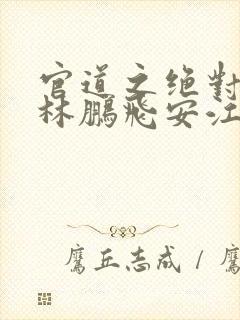 官道之绝对
林鹏飛安江
鹰丘志成 / 鹰